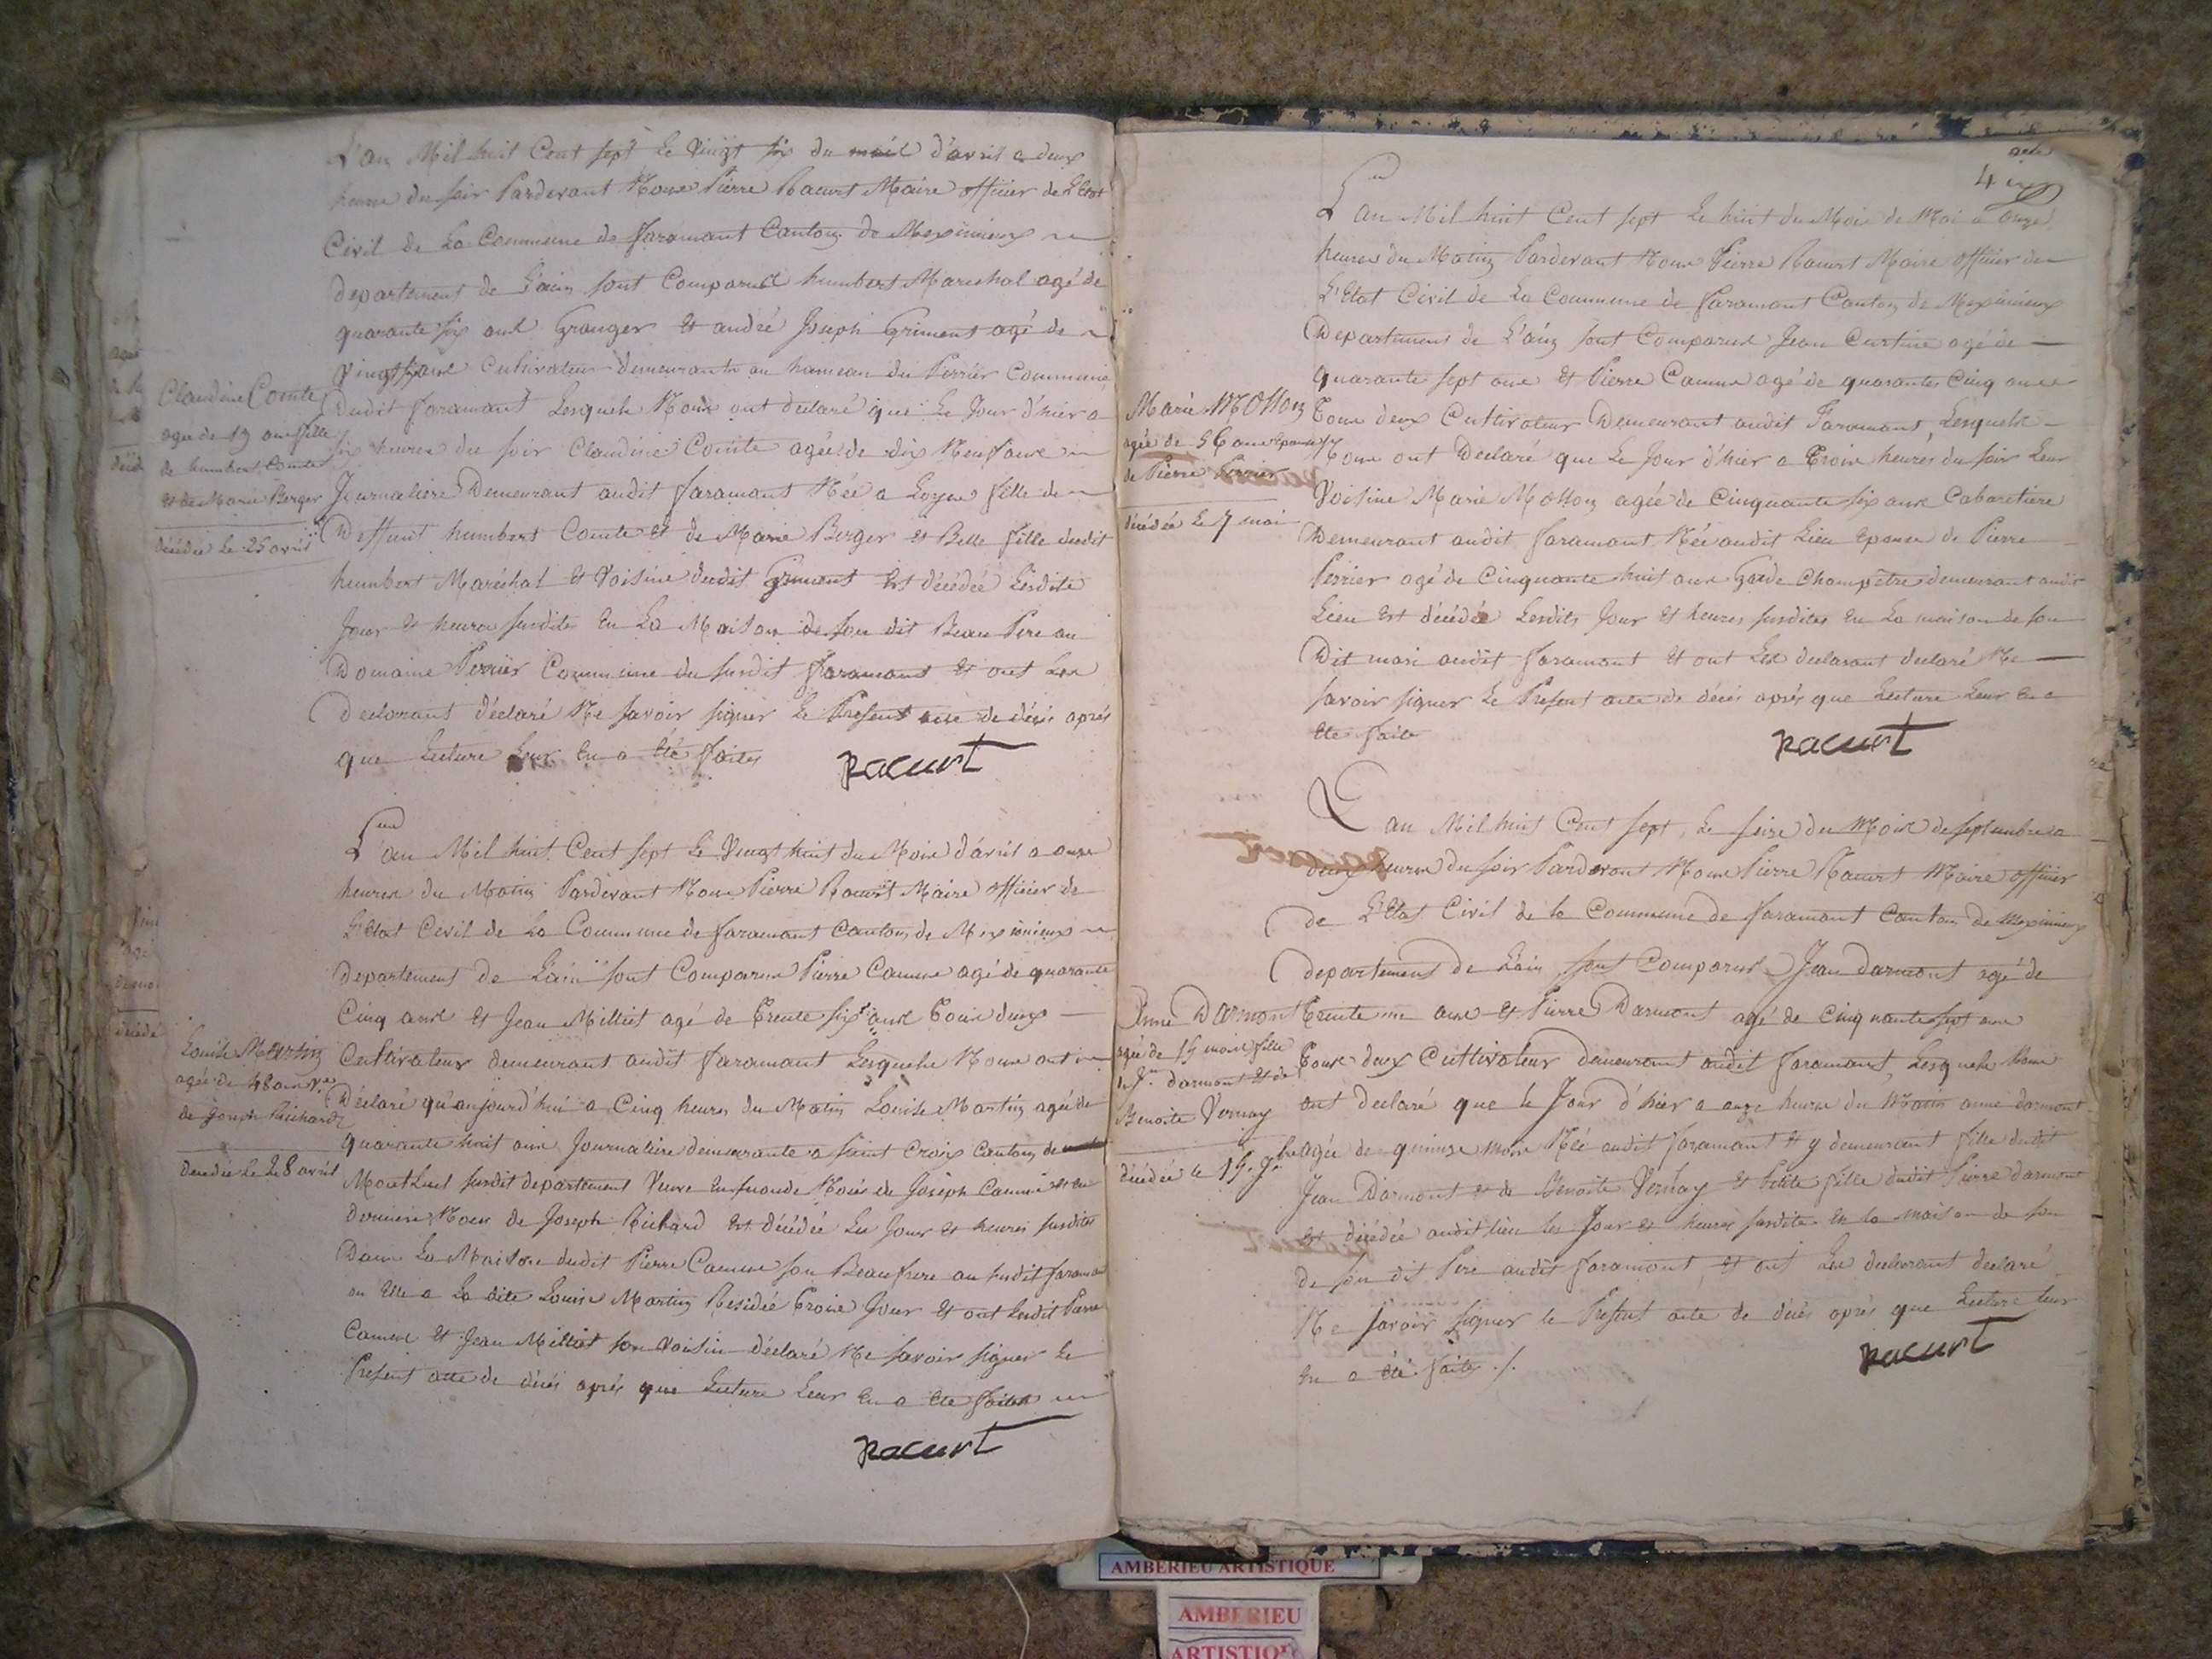 L'an Mil huit Cent sept le vingt six du moid d'avril a deux
heures du soir Pardevant Nous Pierre Racurt Maire officier de L'Etat
Civil de La Commune de faramant Canton de Meximieux
departement de L'ain sont Comparus humbert Marechal agé de
quarante six ans Granger et andré Joseph Griment agé de
vingt six ans Cultivateur demeurants au hameau du Perrier Commune
dudit faramant Lesquels Nous ont declaré que Le Jour d'hier a
six heures du soir Claudine Comte agée de dix Neuf ans
Journaliere Demeurant audit faramant Née a Loyes fille de
Deffunt humbert Comte et de Marie Berger et Belle fille dudit
humbert Maréchal et Voisine dudit Griment Est décédée Lesdits
Jour et heures susdits En La Maison de son dit Beau Pere au
Domaine Perrier Commune du susdit faramant et ont Les
declarant déclaré Ne savoir signer le Present acte de décés aprés
que Lecture Leur En a été faites
Racurt
Claudine Comte
agée de 19 ans fille
de humbert Comte
et de Marie Berger
décédée le 25 avril
L'an Mil huit Cent sept le Vingt huit du Mois d'avril a onze
heures du Matin Pardevant Nous Pierre Racurt Maire officier de
L'Etat Civil de La Commune de faramant Canton de Meximieux
departement de L'ain sont Comparus Pierre Camus agé de quarante
Cinq ans et Jean Milliet agé de Trente six ans Tous deux
Cultivateur demeurant audit faramant Lesquels Nous ont
Déclaré qu'aujourd'hui a Cinq heures du Matin Louise Martin agée de
quarante huit ans Journaliere demeurante a saint Croix Canton de
Montluel susdit departement Veuve En seconde Noces de Joseph Camus et en
derniere Noces de Joseph Richard Est décédée Les Jour et heures susdites
Dans La Maison dudit Pierre Camus son Beaufrere au susdit faramant
ou Elle a La dite Louise Martin Residée Trois Jour et ont Ledit Pierre
Camus et Jean Milliet son Voisin déclaré Ne savoir signer Le
Present acte de décés aprés que Lecture Leur En a été faites
Racurt
Louise Martin
agée de 48 ans Ve
de Joseph Richard
decedée le 28 avril
4
L'an Mil huit Cent sept le huit du Mois de Mai a Onze
heures du Matin Pardevant Nous Pierre Racurt Maire officier de
L'Etat Civil de La Commune de faramant Canton de Meximieux
Departement de L'ain sont Comparus Jean Curtine agé de
Quarante sept ans et Pierre Camus agé de quarante Cinq ans
Tous deux Cultivateur Demeurant audit Faramant, Lesquels
Nous ont Declaré que Le Jour d'hier a Trois heures du soir Leur
Voisine Marie Mollon agée de Cinquante six ans Cabaretiere
Demeurant audit faramant Née audit Lieu Epouse de Pierre
Perrier agé de Cinquante huit ans Garde Champêtre demeurant audit
Lieu Est décédée Lesdits Jour et heures susdites En La maison de son
Dit mari audit faramant et ont Les declarant declaré Ne
savoir signer Le Present acte de décés aprés que Lecture Leur En a
été faite
Racurt
Marie Mollon
agée de 56 ans Epouse
de Pierre Perrier
décédée Le 7 mai
L'an Mil huit Cent sept, Le seize du Mois de septembre a
deux heures du soir Pardevant Nous Pierre Racurt Maire officier
de L'Etat Civil de la Commune de faramant Canton de Meximieux
departement de L'ain sont Comparus Jean Darmont agé de
Trente un ans et Pierre Darmont agé de cinquante sept ans
Tous deux Cultivateur demeurant audit faramant, Lesquels Nous
ont declaré que le Jour d'hier a onze heures du Matin anne darmont
agée de quinze mois Née audit faramant et y demeurant fille dudit
Jean Darmont et de Benoite Vernay et Petite fille dudit Pierre darmont
est décédée audit lieu les Jour et heures susdite En la maison de son
de son dit Pere audit faramant, et ont Les declarant declaré
Ne savoir signer le Present acte de décés aprés que Lecture leur
En a été faites ./.
Racurt
Anne Darmont
agée de 15 mois fille
de Jn darmont et de
Benoite Vernay
décédée le 15 7bre
AMBERIEU ARTISTIQUE
AMBERIEU
ARTISTIQUE